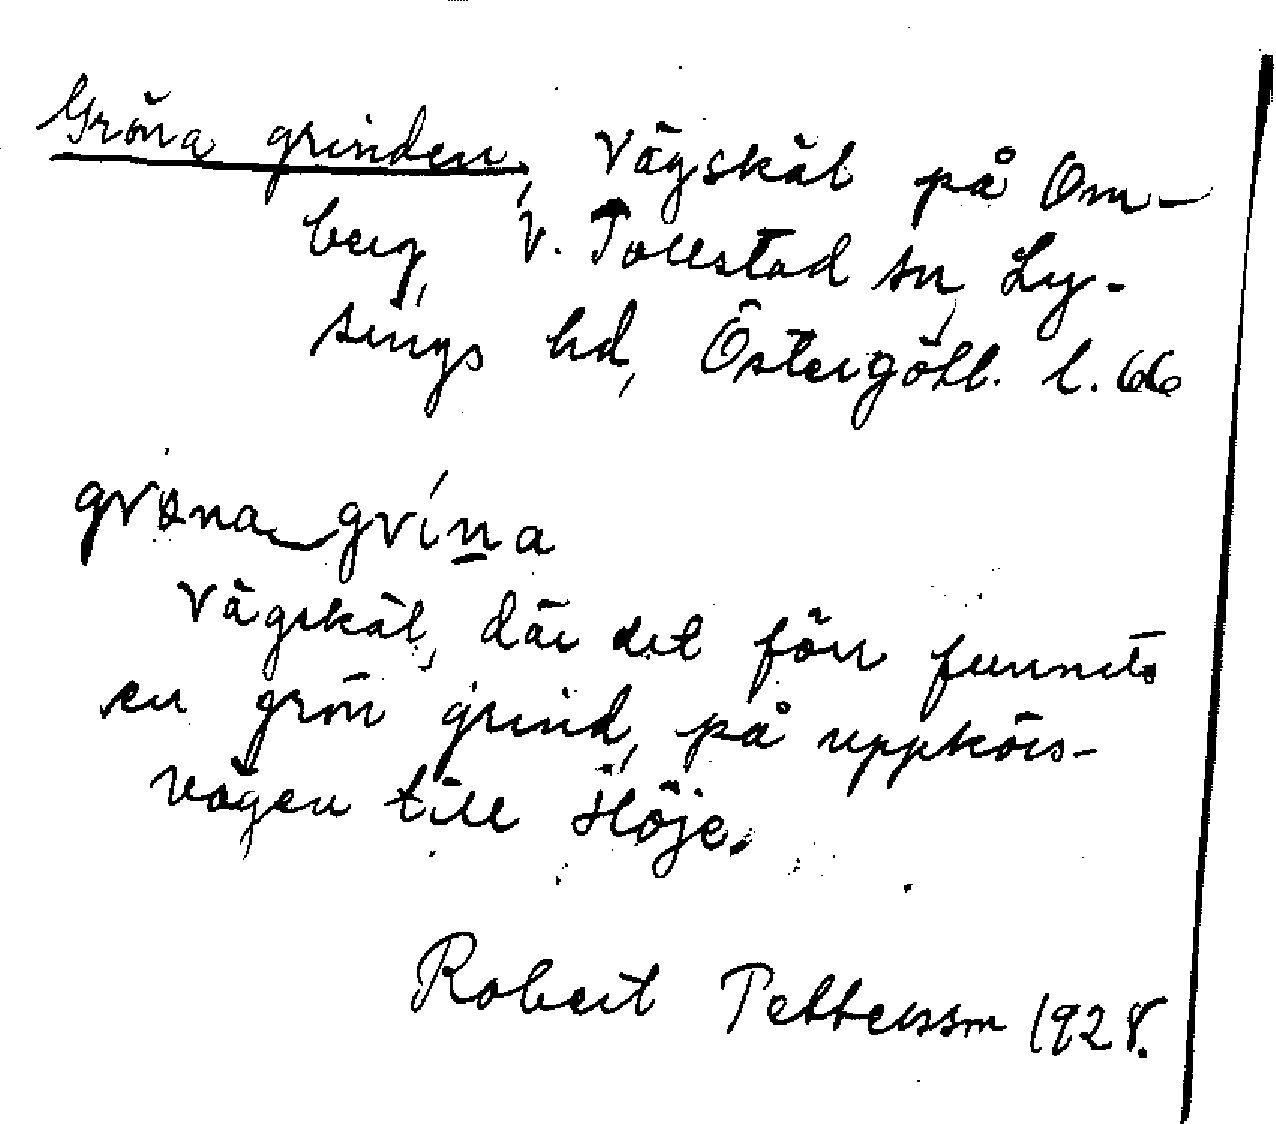 Gröna grinden, Vägskäl på Om-
berg, V. Tollstad sn, Ly-
sings hd, Östergötl. l. 66
grøna grína
Vägskäl, där det förr funnits
en grön grind, på uppkörs-
vägen till Höje.
Robert Pettersson 1928.